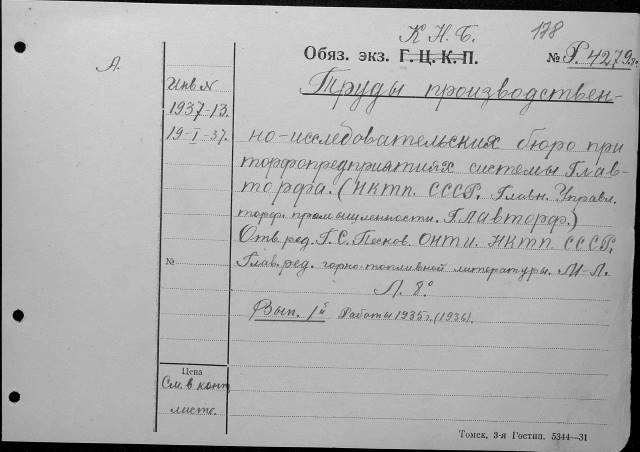 К. Н. Б. 178
Обяз. экз. Г. Ц. К. П. № Р. 4279
А.
Инв №
1937-13.
19-I-37.
Труды производствен-
но-исследовательских бюро при
торфопредприятиях системы Глав-
торфа. (НКТП. СССР. Главн. Управл.
торф. промышленности. Главторф.)
Отв. ред. Г. С. Песков. ОНТИ. НКТП. СССР.
№ Глав. ред. горно-топливной литературы. М-Л.
Л. 8°
Вып. 1й Работы 1935 г. (1936).
Цена
См. в конт
листе.
Томск. 3-я Гостип. 5344—31